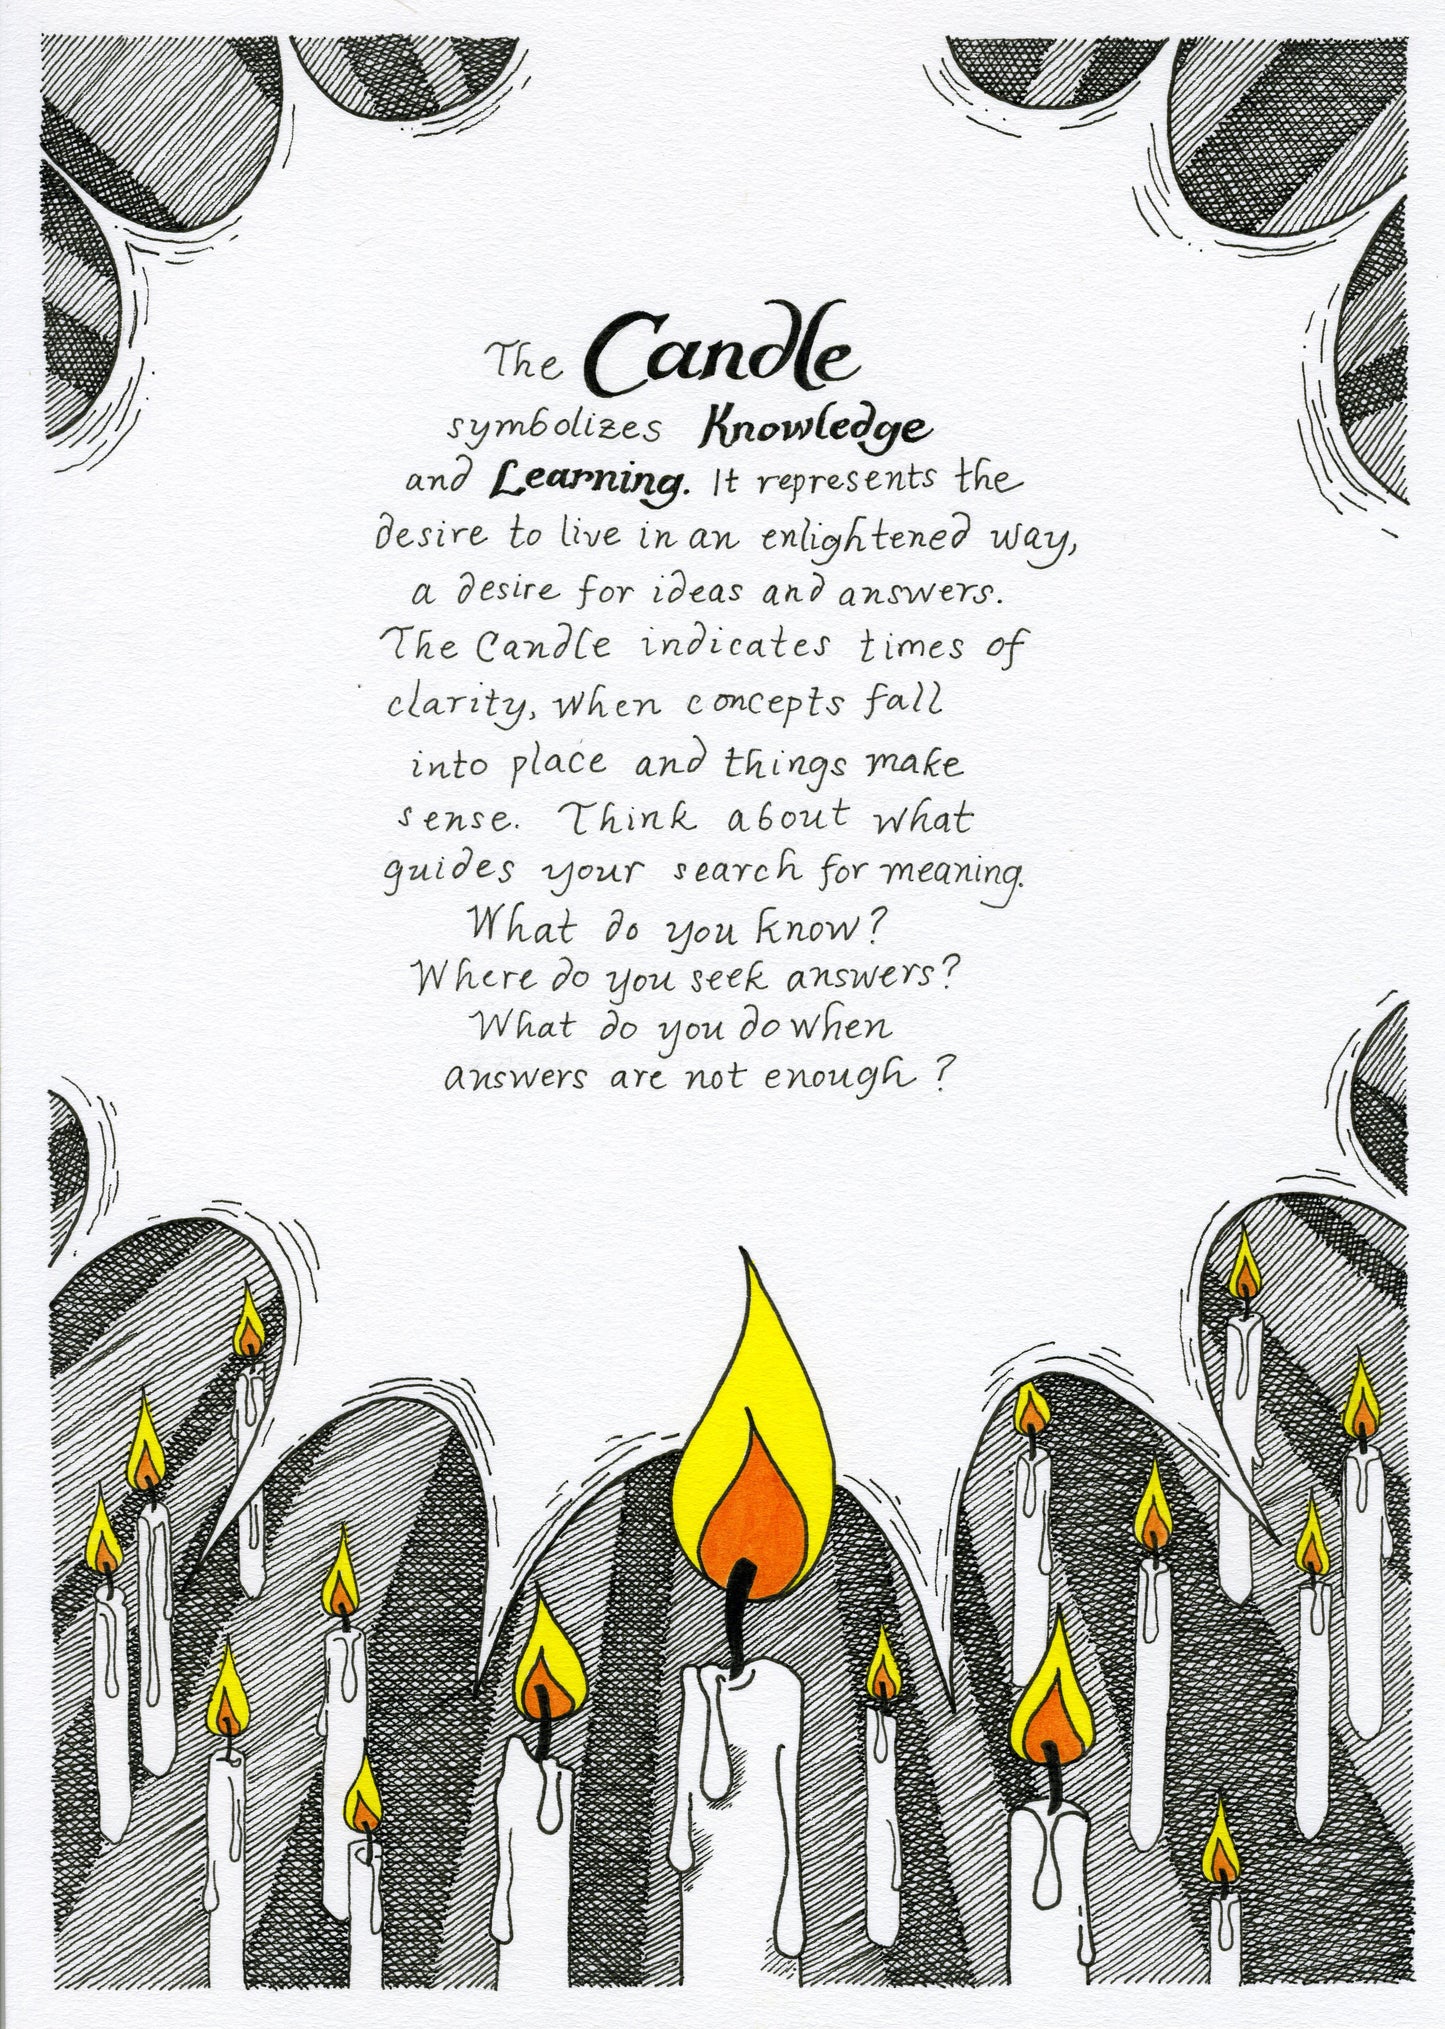 The Candle
symbolizes Knowledge
and Learning. It represents the
desire to live in an enlightened way,
a desire for ideas and answers.
The Candle indicates times of
clarity, when concepts fall
into place and things make
sense. Think about what
guides your search for meaning.
What do you know?
Where do you seek answers?
What do you do when
answers are not enough?